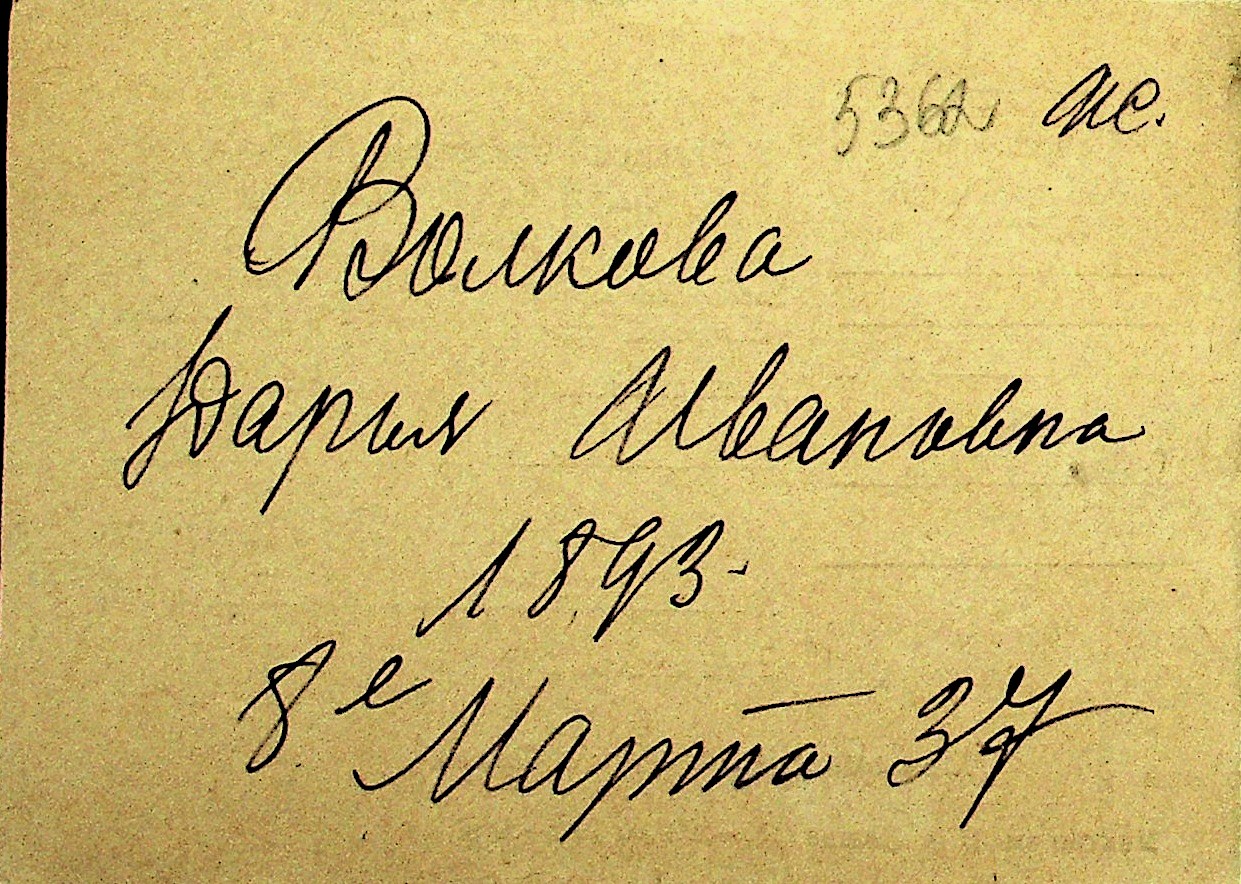 5362 ис.
Волкова
Дарья Ивановна
1893.
8е Марта 37